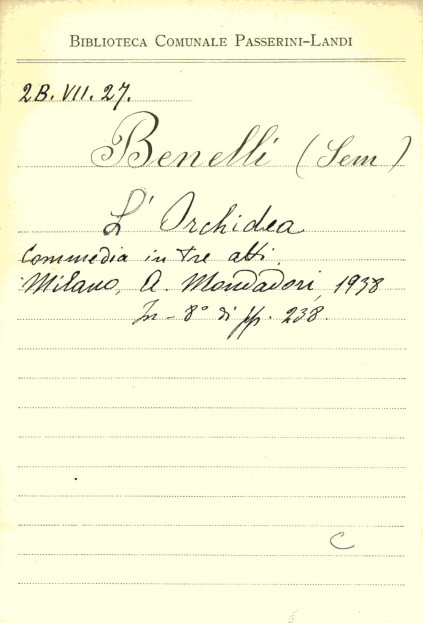 BIBLIOTECA COMUNALE PASSERINI-LANDI
2B. VII. 27.
Benelli (Sem)
L' Orchidea
Commedia in tre atti.
Milano, A. Mondadori, 1938
In-8° di pp. 238.
C